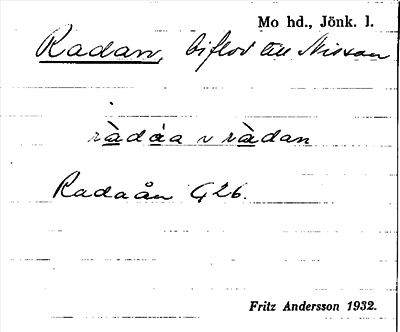 Mo hd., Jönk. l.
Radan, biflod till Nissan
ràdȧa v ràdan
Radaån G26.
Fritz Andersson 1932.